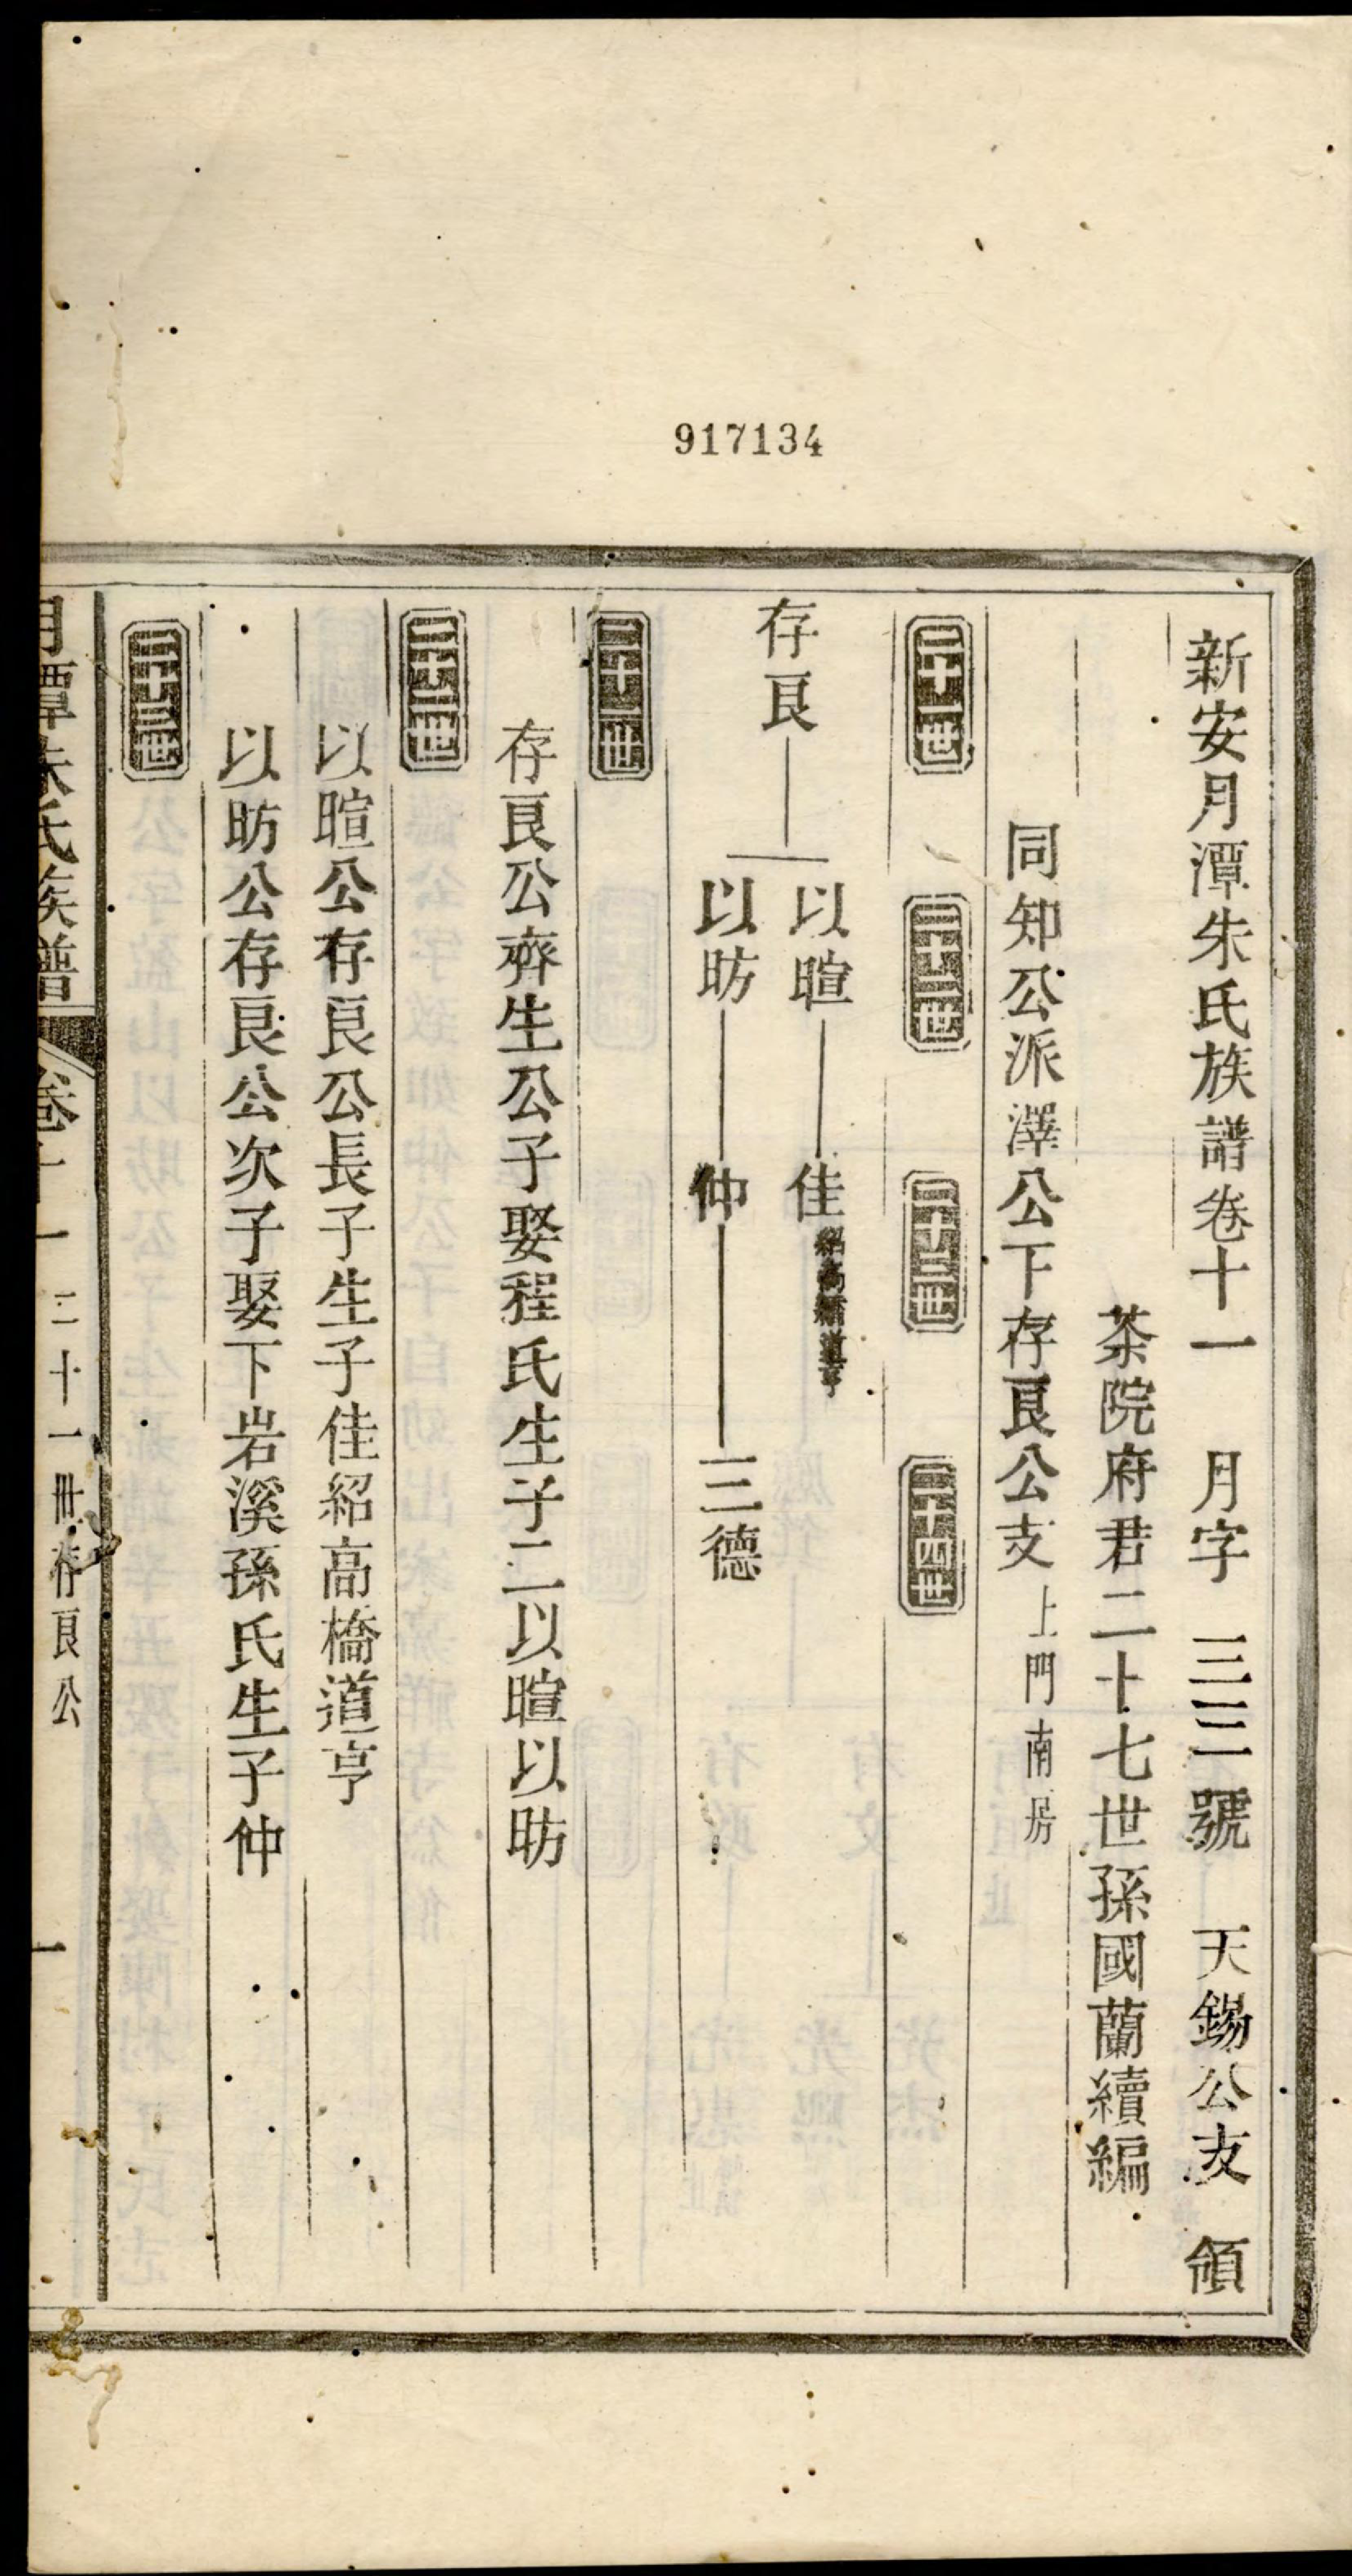 917134
新安月潭朱氏族譜卷十一 月字 三三號 天錫公支 領
茶院府君二十七世孫國蘭續編
同知公派澤公下存艮公支 上門南房
二十一世 二十二世 二十三世 二十四世
存艮
以暄 佳 紹高橋道亨
以昉 仲 三德
二十一世
存艮公齊生公子娶程氏生子二以暄以昉
二十二世
以暄公存艮公長子生子佳紹高橋道亨
以昉公存艮公次子娶下岩溪孫氏生子仲
二十三世
月潭朱氏族譜 卷十一 二十一世存艮公 一